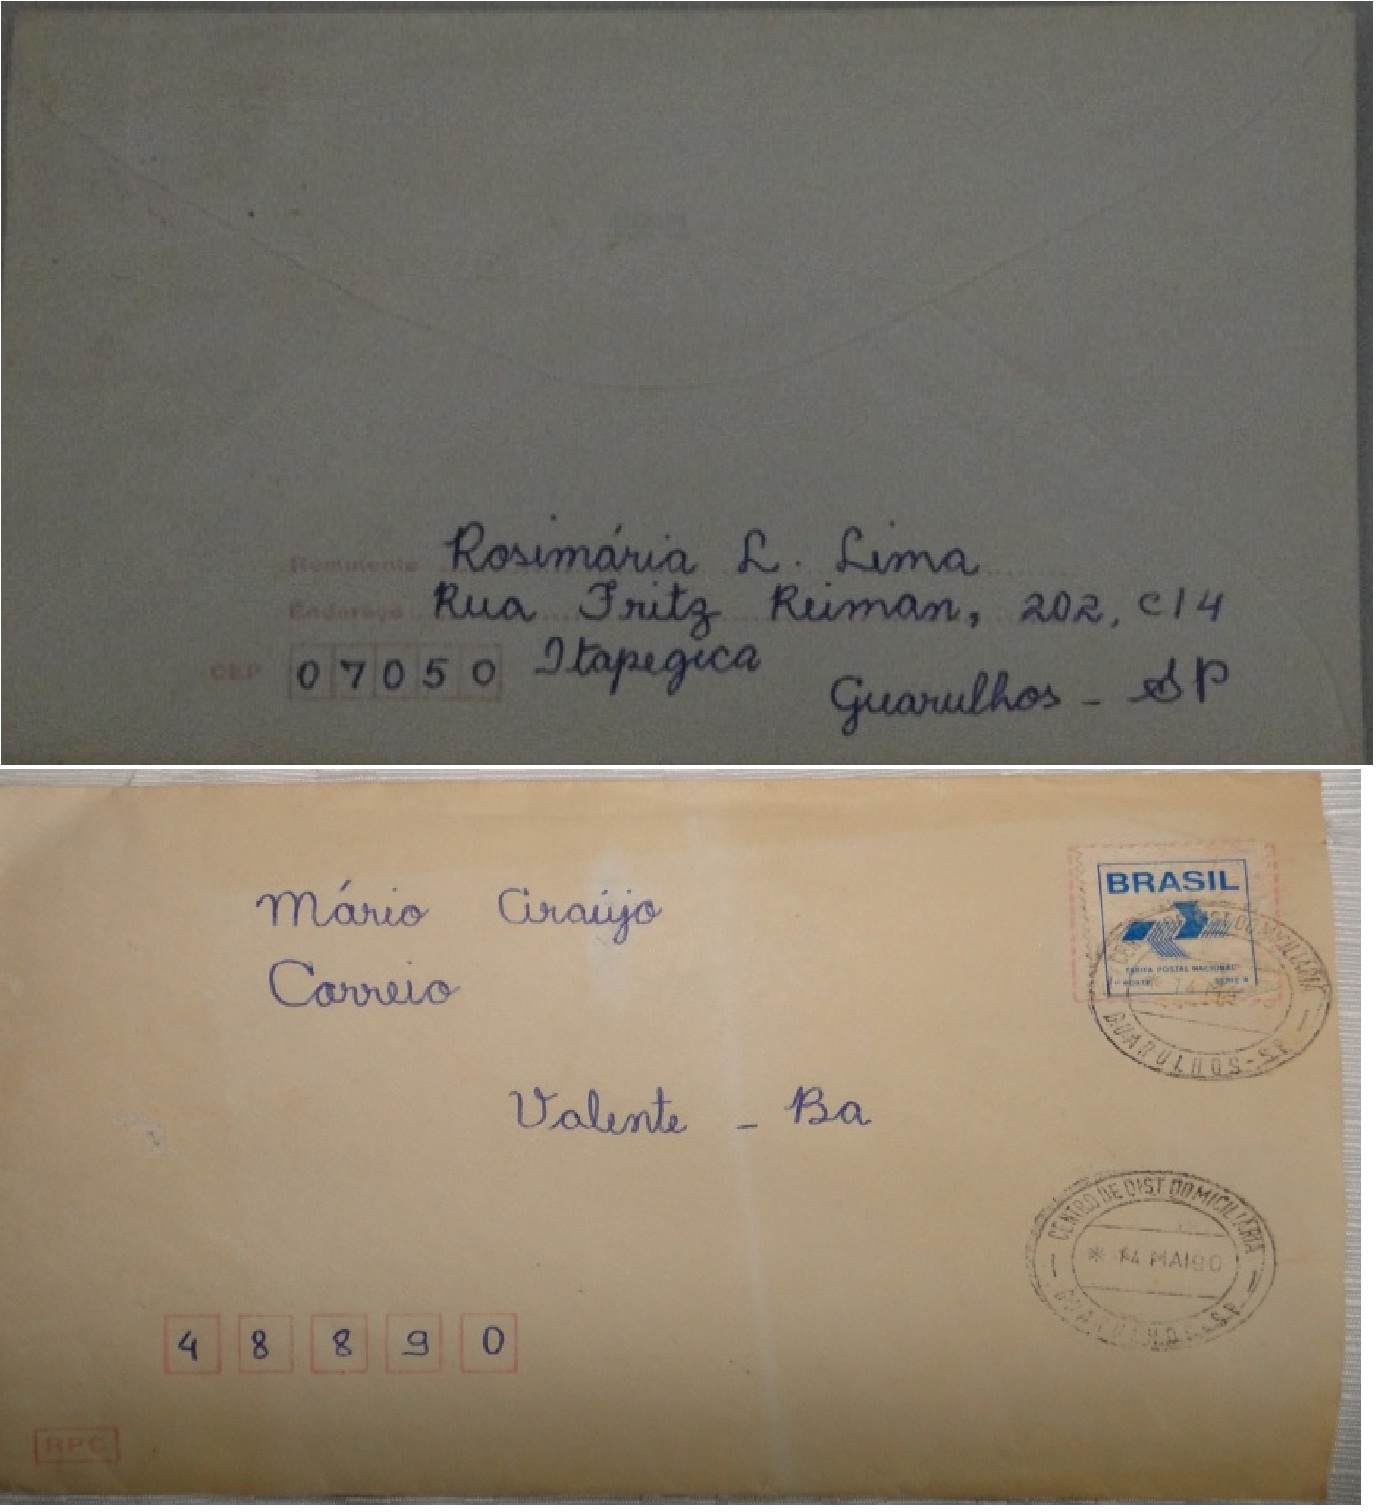 Remetente Rosimária L. Lima
Endereço Rua Fritz Reiman, 202, c/4
CEP 07050 Itapegica
Guarulhos - SP
Mário Araújo
Correio
Valente - Ba
48890
RPC
BRASIL
TARIFA POSTAL NACIONAL
1º PORTE SÉRIE A
GUARULHOS-SP
CENTRO DE DIST DOMICILIARIA
* 14 MAI 90
GUARULHOS-SP